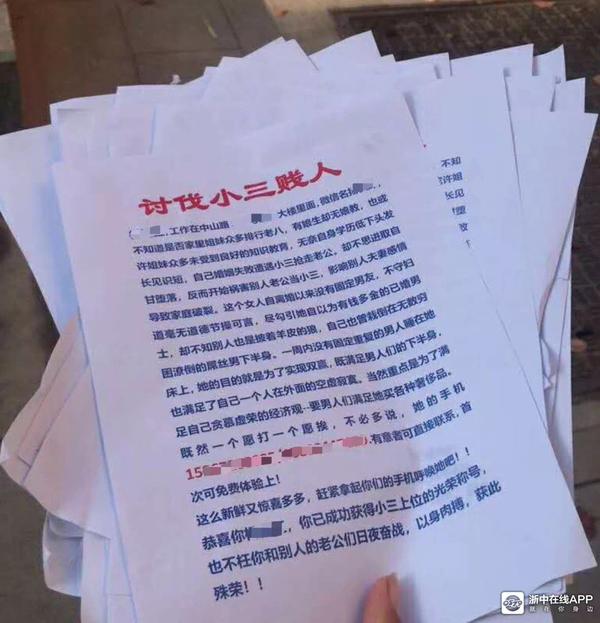 讨伐小三贱人
,工作在中山路 大楼里面,微信名
不知道是否家里姐妹众多排行老八,有娘生却无娘教,也或
许姐妹众多未受到良好的知识教育,无奈自身学历低下头发
长见识短,自己婚姻失败遭遇小三抢走老公,却不思进取自
甘堕落,反而开始祸害别人老公当小三,影响别人夫妻感情
导致家庭破裂。这个女人自离婚以来没有固定男友,不守妇
道毫无道德节操可言,尽勾引她自以为有钱多金的已婚男
士,却不知别人也是披着羊皮的狼,自己也曾栽倒在无数穷
困潦倒的屌丝男下半身。一周内没有固定重复的男人睡在她
床上,她的目的就是为了实现双赢,既满足男人们的下半身,
也满足了自己一个人在外面的空虚寂寞。当然重点是为了满
足自己贪慕虚荣的经济观--要男人们满足她买各种奢侈品。
既然一个愿打一个愿挨,不必多说,她的手机
15 ,有意者可直接联系,首
次可免费体验上!
这么新鲜又惊喜多多,赶紧拿起你们的手机呼唤她吧!!
恭喜你 ,你已成功获得小三上位的光荣称号,
也不枉你和别人的老公们日夜奋战,以身肉搏,获此
殊荣!!
不知
许姐
长见
甘堕
浙中在线APP
就在你身边